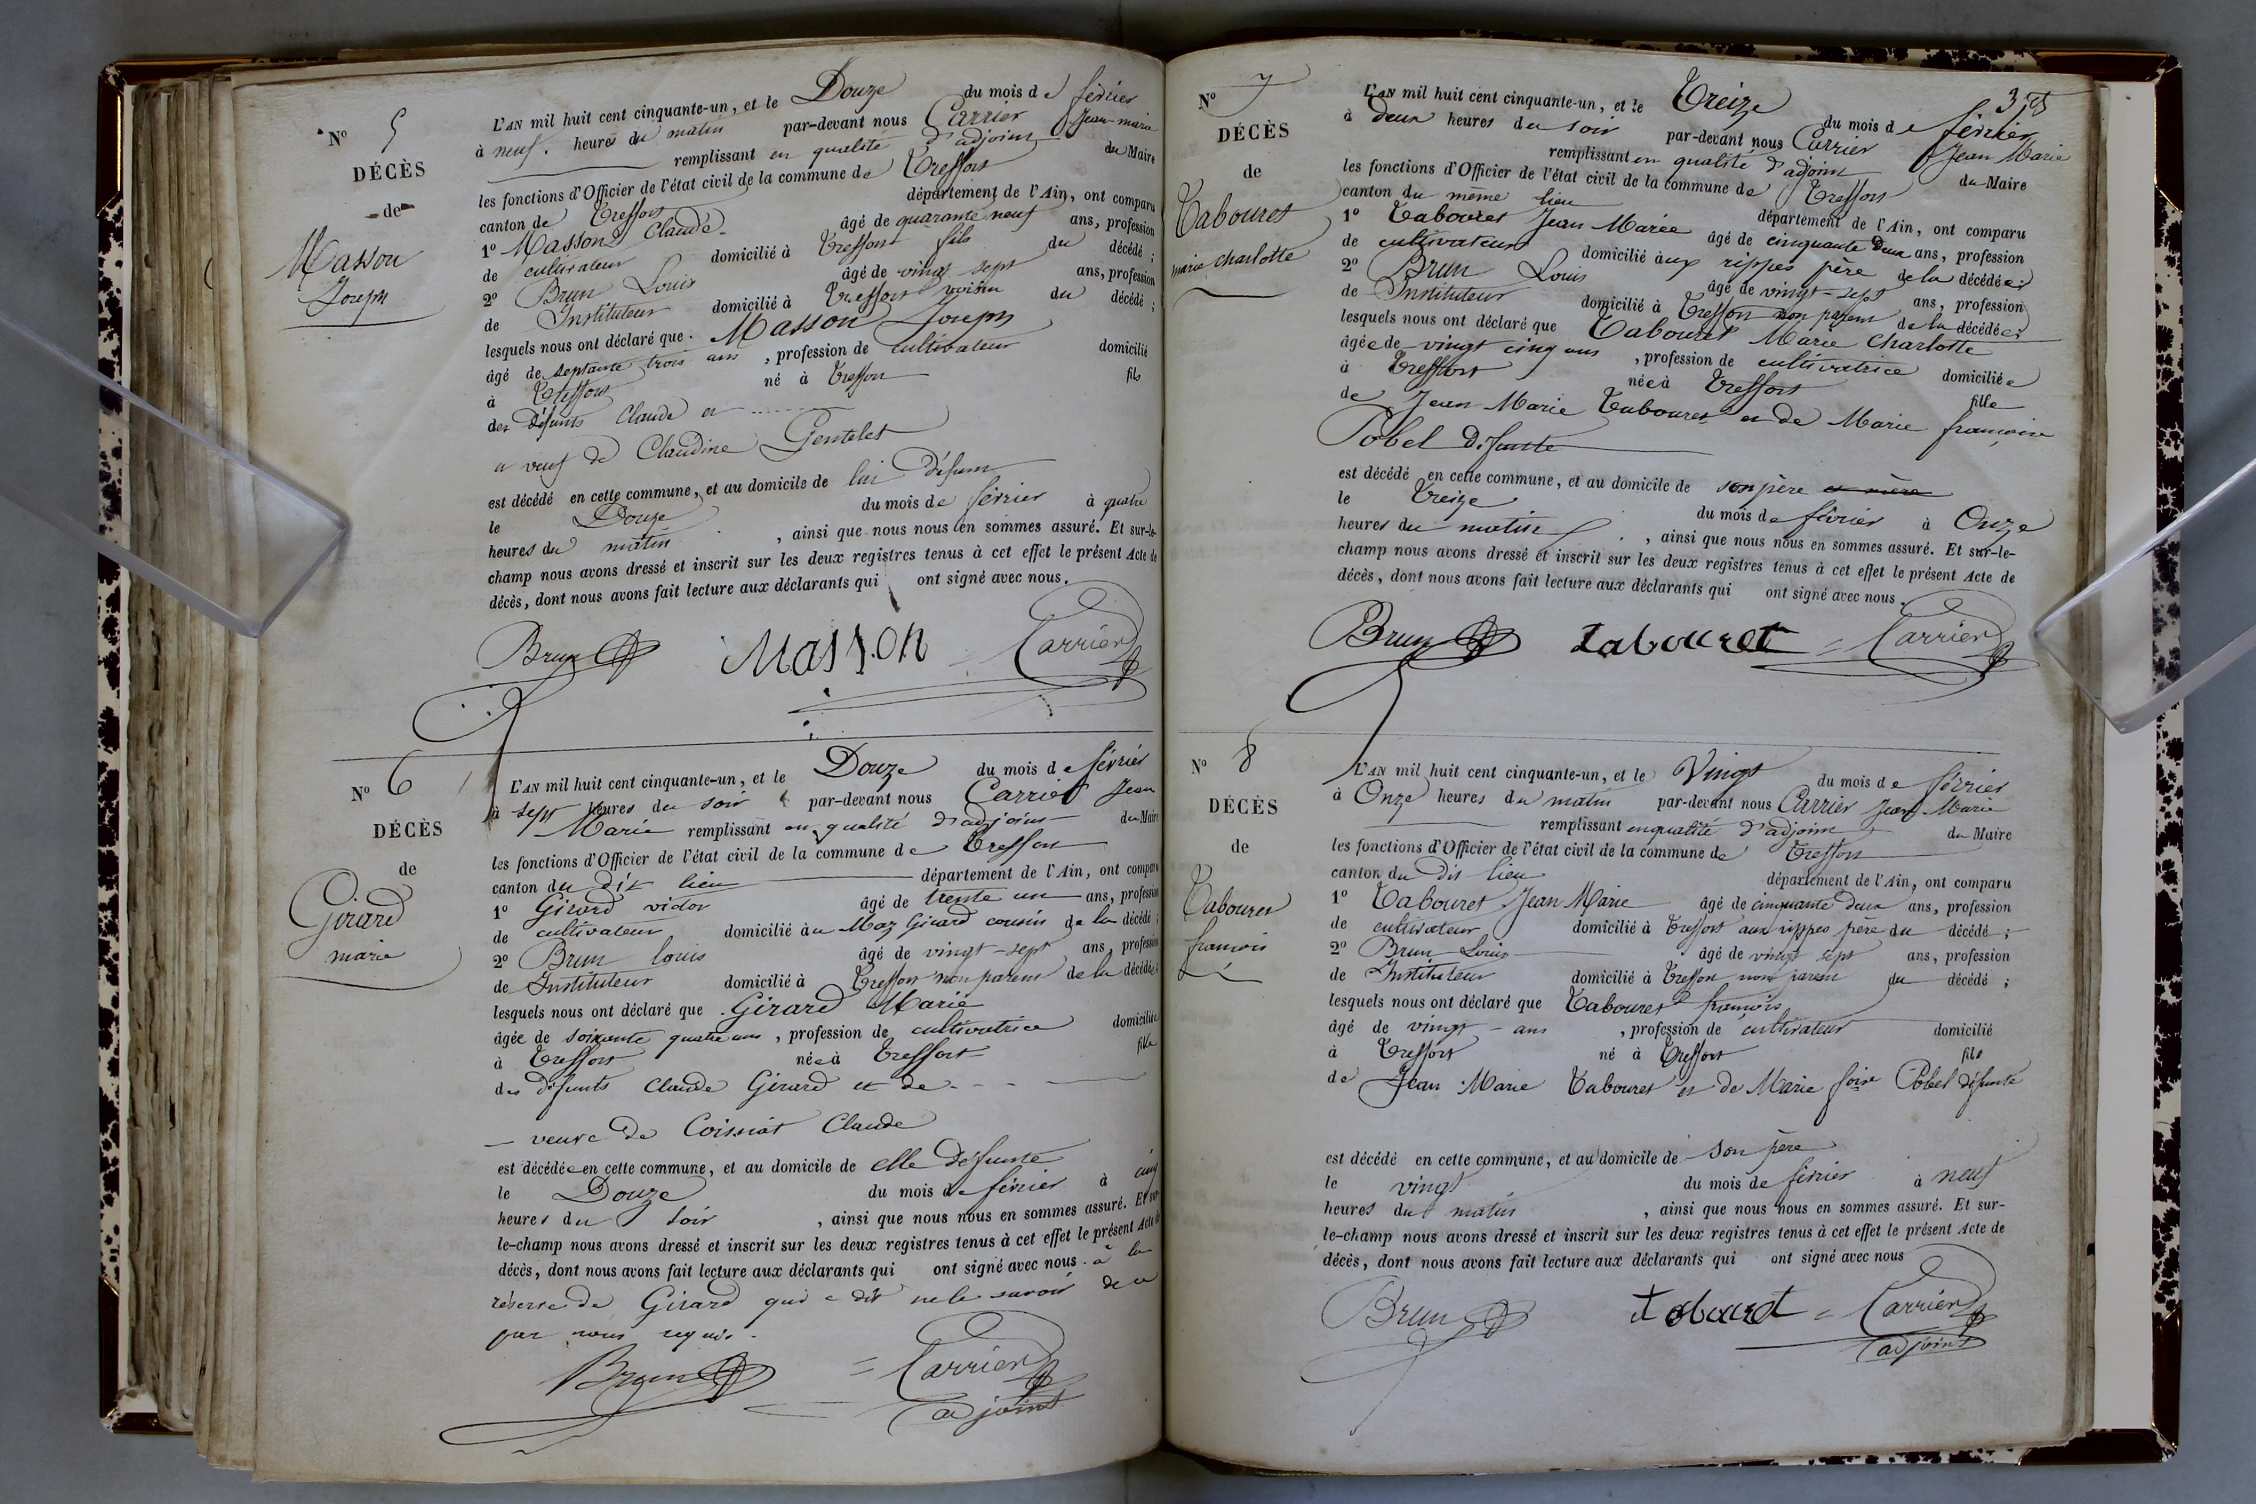 N° 5
DÉCÈS
de
Masson
Joseph
L'AN mil huit cent cinquante-un, et le Douze du mois de février
à neuf heures du matin par-devant nous Carrier Jean-marie
remplissant en qualité d'adjoint du Maire
les fonctions d'Officier de l'état civil de la commune de Treffort
canton de Treffort département de l'Ain, ont comparu
1° Masson Claude âgé de quarante neuf ans, profession
de cultivateur domicilié à Treffort fils du décédé ;
2° Brun Louis âgé de vingt-sept ans, profession
de Instituteur domicilié à Treffort voisin du décédé ;
lesquels nous ont déclaré que Masson Joseph
âgé de septante trois ans, profession de cultivateur domicilié
à Treffort né à Treffort fils
des défunts Claude et
et veuf de Claudine Gentelet
est décédé en cette commune, et au domicile de lui défunt
le Douze du mois de février à quatre
heures du matin, ainsi que nous nous en sommes assuré. Et sur-le-
champ nous avons dressé et inscrit sur les deux registres tenus à cet effet le présent Acte de
décès, dont nous avons fait lecture aux déclarants qui ont signé avec nous.
Brun Masson Carrier
N° 6
DÉCÈS
de
Girard
marie
L'AN mil huit cent cinquante-un, et le Douze du mois de février
à sept heures du soir par-devant nous Carrier Jean
Marie remplissant en qualité d'adjoint du Maire
les fonctions d'Officier de l'état civil de la commune de Treffort
canton du dit lieu département de l'Ain, ont comparu
1° Girard victor âgé de trente un ans, profession
de cultivateur domicilié au Maz Girard cousin de la décédé ;
2° Brun louis âgé de vingt-sept ans, profession
de Instituteur domicilié à Treffort non parent de la décédée ;
lesquels nous ont déclaré que Girard Marie
âgée de soixante quatre ans, profession de cultivatrice domiciliée
à Treffort née à Treffort fille
des défunts Claude Girard et de
veuve de Coissiat Claude
est décédée en cette commune, et au domicile de elle défunte
le Douze du mois de février à cinq
heures du soir, ainsi que nous nous en sommes assuré. Et sur-
le-champ nous avons dressé et inscrit sur les deux registres tenus à cet effet le présent Acte de
décès, dont nous avons fait lecture aux déclarants qui ont signé avec nous. à la
réserve de Girard qui a dit ne le savoir de ce
par nous requis.
Brun Carrier
adjoint
375
N° 7
DÉCÈS
de
Tabouret
marie charlotte
L'AN mil huit cent cinquante-un, et le Treize du mois de février
à deux heures du soir par-devant nous Carrier Jean Marie
remplissant en qualité d'adjoint du Maire
les fonctions d'Officier de l'état civil de la commune de Treffort
canton du même lieu département de l'Ain, ont comparu
1° Tabouret Jean Marie âgé de cinquante deux ans, profession
de cultivateur domicilié aux rippes père de la décédée ;
2° Brun Louis âgé de vingt-sept ans, profession
de Instituteur domicilié à Treffort non parent de la décédée ;
lesquels nous ont déclaré que Tabouret Marie Charlotte
âgée de vingt cinq ans, profession de cultivatrice domiciliée
à Treffort née à Treffort fille
de Jean-Marie Tabouret et de Marie françoise
Pobel défunte
est décédé en cette commune, et au domicile de son père et mère
le treize du mois de février à Onze
heures du matin, ainsi que nous nous en sommes assuré. Et sur-le-
champ nous avons dressé et inscrit sur les deux registres tenus à cet effet le présent Acte de
décès, dont nous avons fait lecture aux déclarants qui ont signé avec nous.
Brun tabouret Carrier
N° 8
DÉCÈS
de
Tabouret
françois
L'AN mil huit cent cinquante-un, et le Vingt du mois de février
à Onze heures du matin par-devant nous Carrier Jean Marie
remplissant en qualité d'adjoint du Maire
les fonctions d'Officier de l'état civil de la commune de Treffort
canton du dit lieu département de l'Ain, ont comparu
1° Tabouret Jean Marie âgé de cinquante deux ans, profession
de cultivateur domicilié à Treffort aux rippes père du décédé ;
2° Brun Louis âgé de vingt sept ans, profession
de Instituteur domicilié à Treffort non parent du décédé ;
lesquels nous ont déclaré que Tabouret françois
âgé de vingt-ans, profession de cultivateur domicilié
à Treffort né à Treffort fils
de Jean-Marie Tabouret et de Marie foise Pobel défunte
est décédé en cette commune, et au domicile de son père
le vingt du mois de février à neuf
heures du matin, ainsi que nous nous en sommes assuré. Et sur-
le-champ nous avons dressé et inscrit sur les deux registres tenus à cet effet le présent Acte de
décès, dont nous avons fait lecture aux déclarants qui ont signé avec nous
Brun tabouret Carrier
adjoint